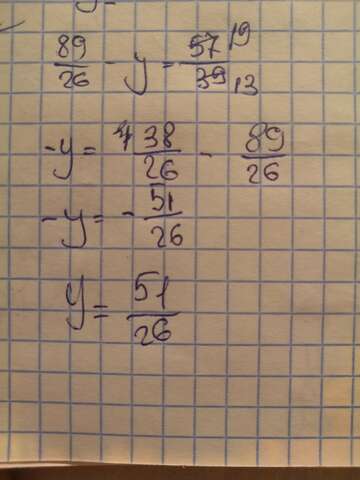 89/26 - y = 57/39 19/13
-y = 38/26 - 89/26
-y = - 51/26
y = 51/26